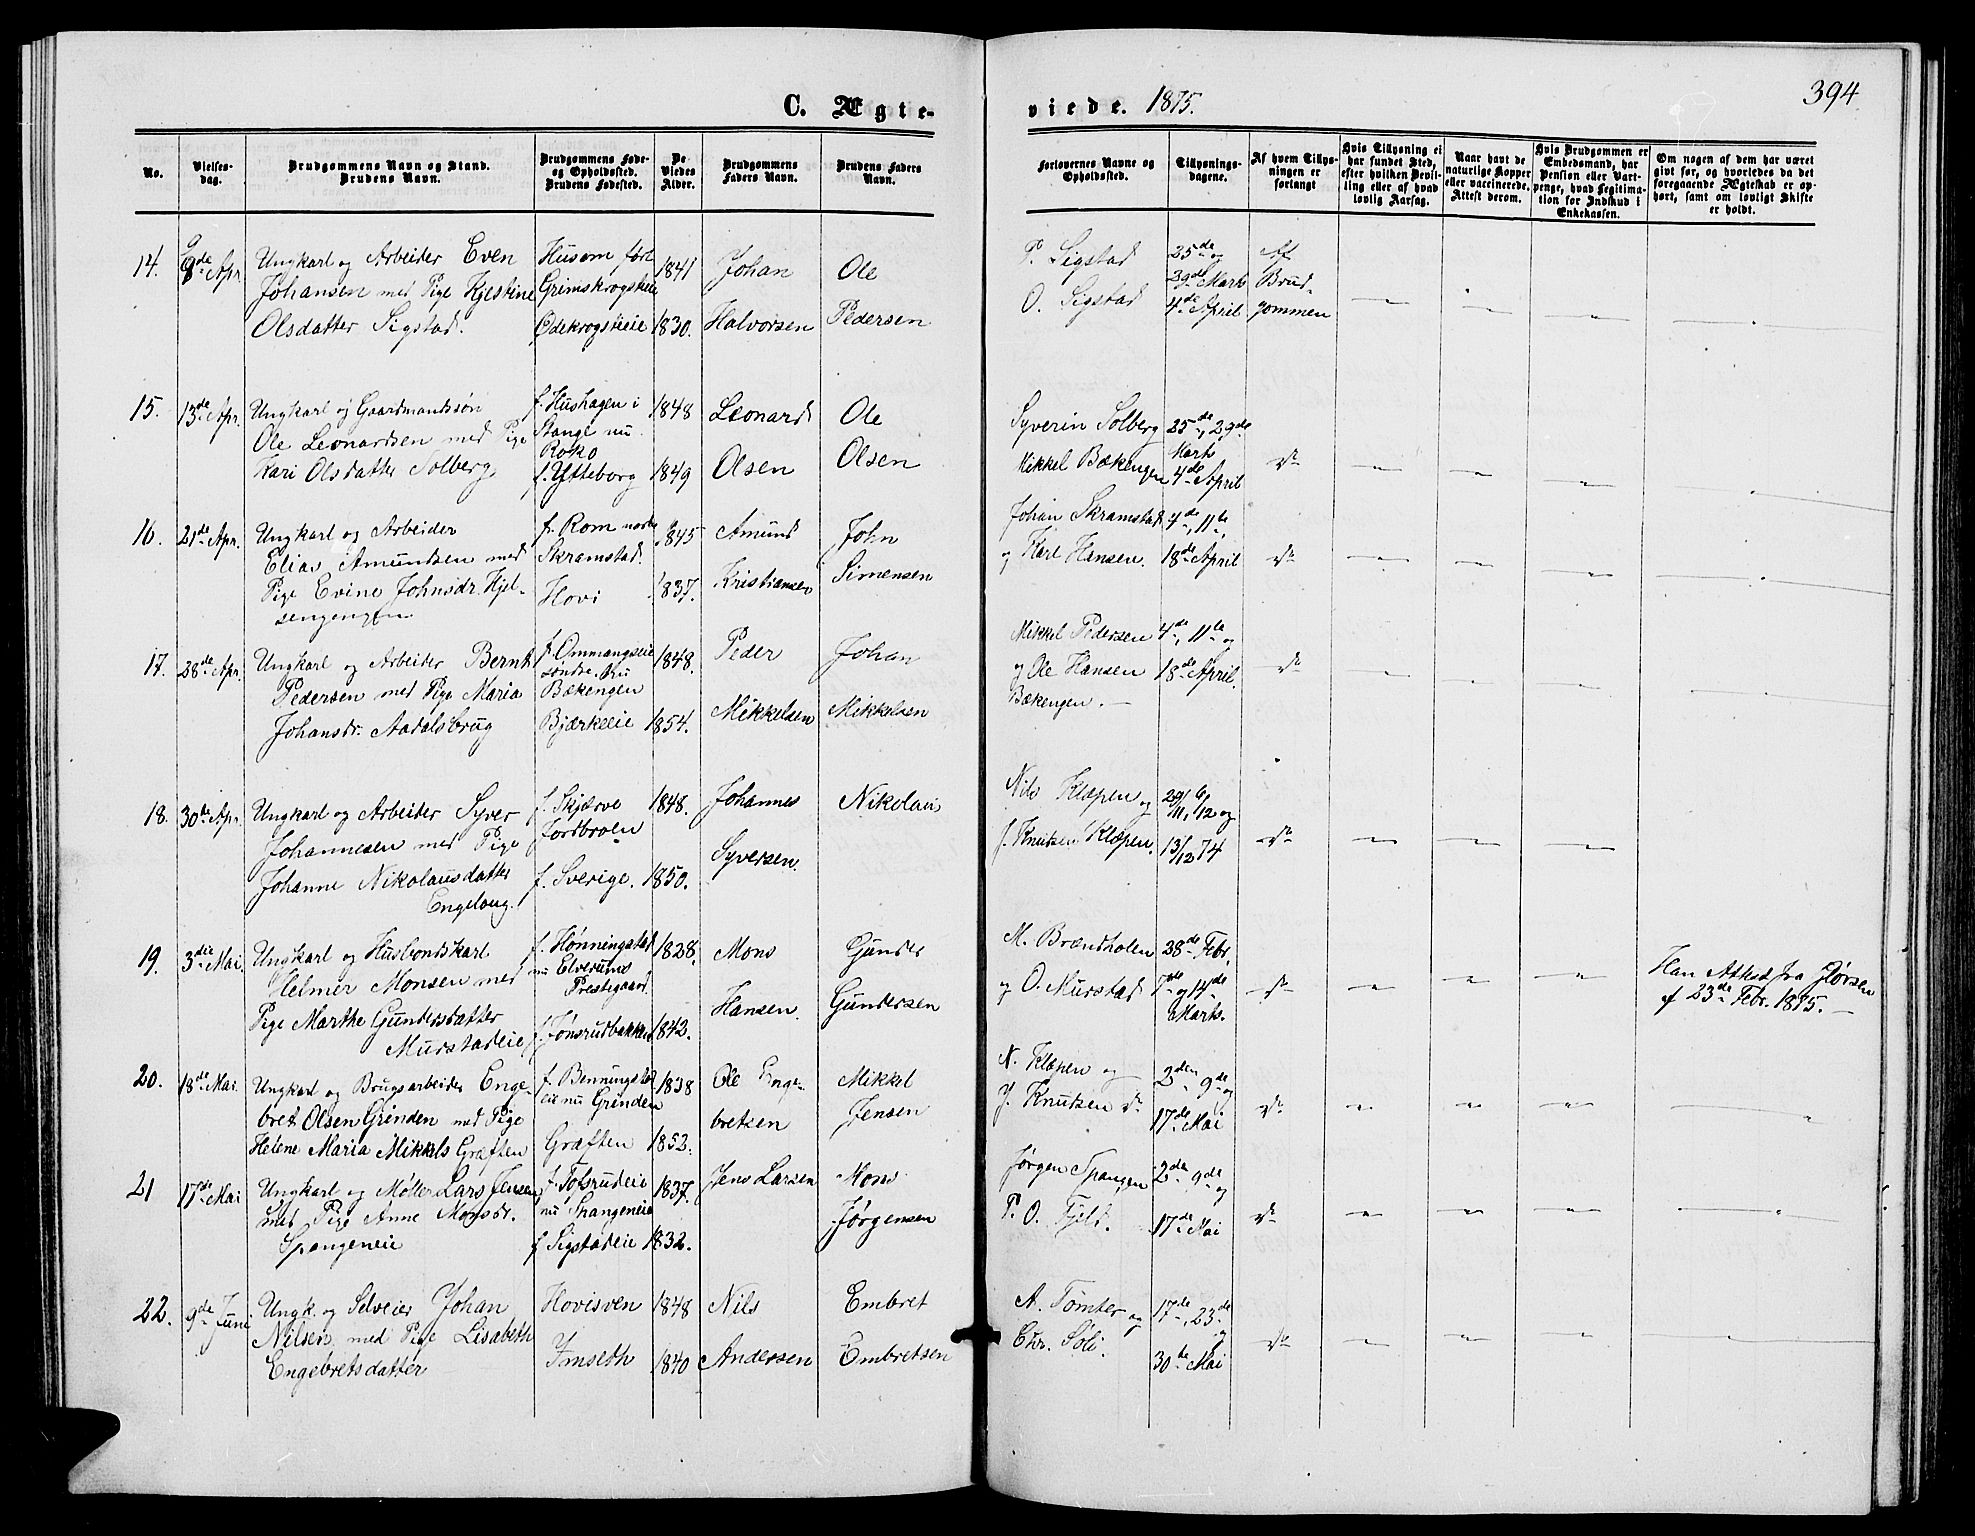 394
C. Ægte-
viede. 1875.
No.
Vielses-
dag.
Brudgommens Navn og Stand.
Brudens Navn.
Brudgommens Føde-
og Opholdssted.
Brudens Fødested.
De
Viedes
Alder.
Brudgommens
Faders Navn.
Brudens Faders
Navn.
Forlovernes Navne og
Opholdssted.
Tillysnings-
dagene.
Af hvem Tillys-
ningen er
forlangt
Hvis Tillysning ei
har fundet Sted,
efter hvilken Bevil-
ling eller af hvad
lovlig Aarsag.
Naar havt de
naturlige Kopper
eller vaccinerede.
Attest derom.
Hvis Brudgommen er
Embedsmand, har
Pension eller Vart-
penge, hvad Legitima-
tion for Indskud i
Enkekassen.
Om nogen af dem har været
givt før, og hvorledes da det
foregaaende Ægteskab er op-
hørt, samt om lovligt Skifte
er holdt.
14.
9de Apr.
Ungkarl og Arbeider Even
Johansen med Pige Kjestine
Olsdatter Sigstad.
Husom født
Grimskrogseie
Ødekrogseie
1841
1830.
Johan
Halvorsen
Ole
Pedersen
P. Sigstad
O. Sigstad
25de og
29de Marts
4de April
Af
Brud-
gommen
15.
13de Apr.
Ungkarl og Gaardmandssøn
Ole Leonardsen med Pige
Kari Olsdatter Solberg
f. Hushagen i
Stange nu
Roko
f. Ytteborg
1848
1849
Leonard
Olsen
Ole
Olsen
Syverin Solberg
Mikkel Bækengen
25de, 29de
Marts
4de April
16.
21de Apr.
Ungkarl og Arbeider
Elias Amundsen med
Pige Evine Johnsdr. Hjel-
sengengen
f. Rom
Skramstad.
Hovi
1845
1837.
Amund
Kristiansen
John
Simensen
Johan Skramstad
og Karl Hansen.
4de, 11te,
18de April
17.
28de Apr.
Ungkarl og Arbeider Bernt
Pedersen med Pige Maria
Johansdr. Aadalsbrug
f. Ommangseie
søndre. Nu
Bækengen
Bjærkeeie
1848.
1854.
Peder
Mikkelsen
Johan
Mikkelsen
Mikkel Pedersen
og Ole Hansen
Bækengen.
4de, 11te og
18de April.
18.
30de Apr.
Ungkarl og Arbeider Syver
Johannesen med Pige
Johanne Nikolausdatter
Engeloug.
f. Skjærve
Jordbroen
f. Sverige.
1848.
1850.
Johannes
Syversen.
Nikolaus
Nils Klæpen og
J. Knutsen Klæpen.
29/11, 6/12 og
13/12 74
19.
3die Mai.
Ungkarl og Husbondskarl
Helmer Monsen med
Pige Marthe Gundersdatter
Murstadeie
f. Hønningstad
nu Elverums
Prestegaard.
f. Jønsrudbakken
1828.
1842.
Mons
Hansen.
Gunder
Gundersen
M. Brændholen
og O. Murstad
28de Febr.
7de og 14de
Marts.
Han Attest fra
af 23de Febr. 1875.
20.
18de Mai.
Ungkarl og Brugsarbeider Enge-
bret Olsen Grinden med Pige
Helene Maria Mikkels Græften
f. Benningstad
eie nu Grinden
Græften
1838
1852.
Ole Enge-
bretsen
Mikkel
Jensen
N. Klæpen og
J. Knutsen
2den 9de og
17de Mai
21
17de Mai
Ungkarl og Møller Lars Jensen
med Pige Anne Monsdr.
Spangeneie
f. Tofsrudeie
nu Spangeneie
f. Sigstadeie
1837.
1832.
Jens Larsen
Mons
Jørgensen
Jørgen Spangen
P. O. Fjeld.
2den 9de og
17de Mai
22.
9de Juni
Ungk. og Selveier Johan
Nilsen med Pige Lisabeth
Engebretsdatter
Hovisven
Imseth
1848
1840
Nils
Andersen
Embret
Embretsen
A. Tømter og
Chr. Søli.
17de, 23de
og
30te Mai